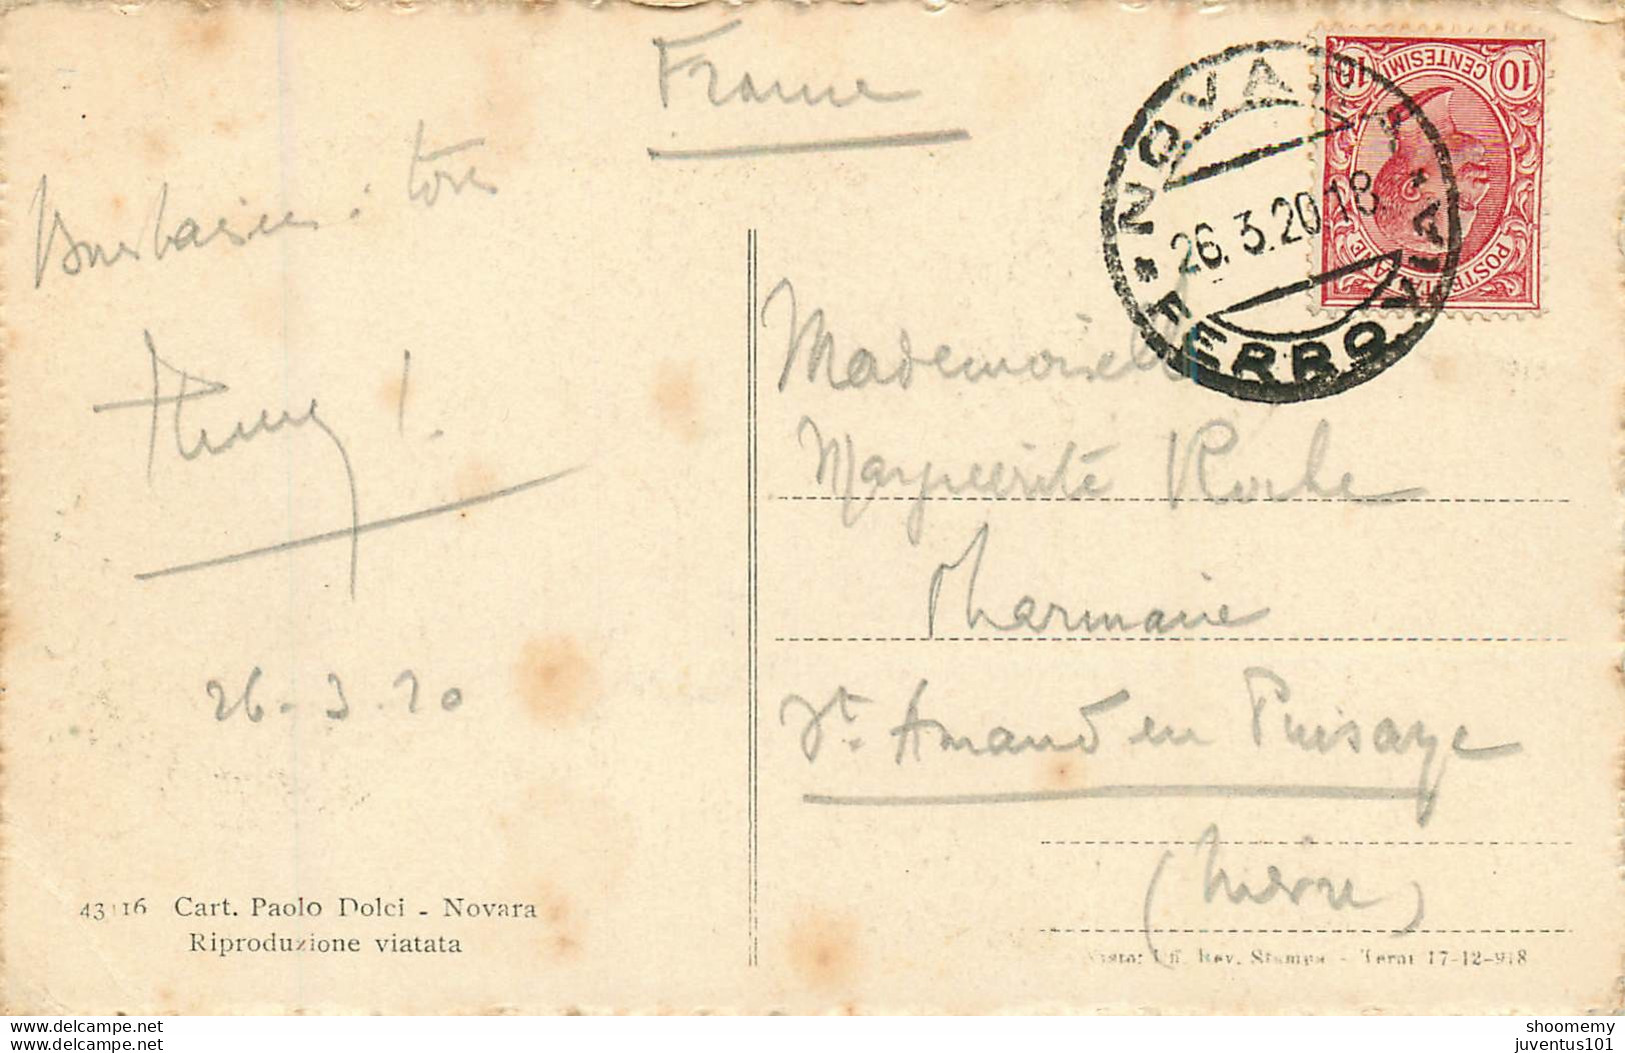 France
NOVARA
FERROVIA
26.3.20.18
10 CENTESIMI 10
POSTE ITALIANE
Mademoiselle
Marguerite Roche
Pharmacie
St. Amand en Puisaye
(Nièvre)
26-3.20
43116 Cart. Paolo Dolci - Novara
Riproduzione viatata
Visto: Uff. Rev. Stampa - Terni 17-12-918
www.delcampe.net
www.delcampe.net
shoomemy
juventus101